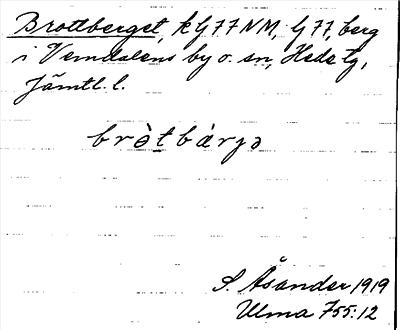 Brottberget, k G77 NM, G77, berg
i Vemdalens by o. sn, Hede tg,
Jämtl. l.
bròtbárjə
S. Åsander 1919
Ulma 755:12